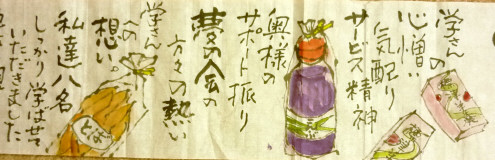 学さんの
心憎い
気配り
サービス精神
奥様の
サポート振り
夢の会の
方々の熱い
学さん
への
想い。
私達八名
しっかり学ばせて
いただきました
とば